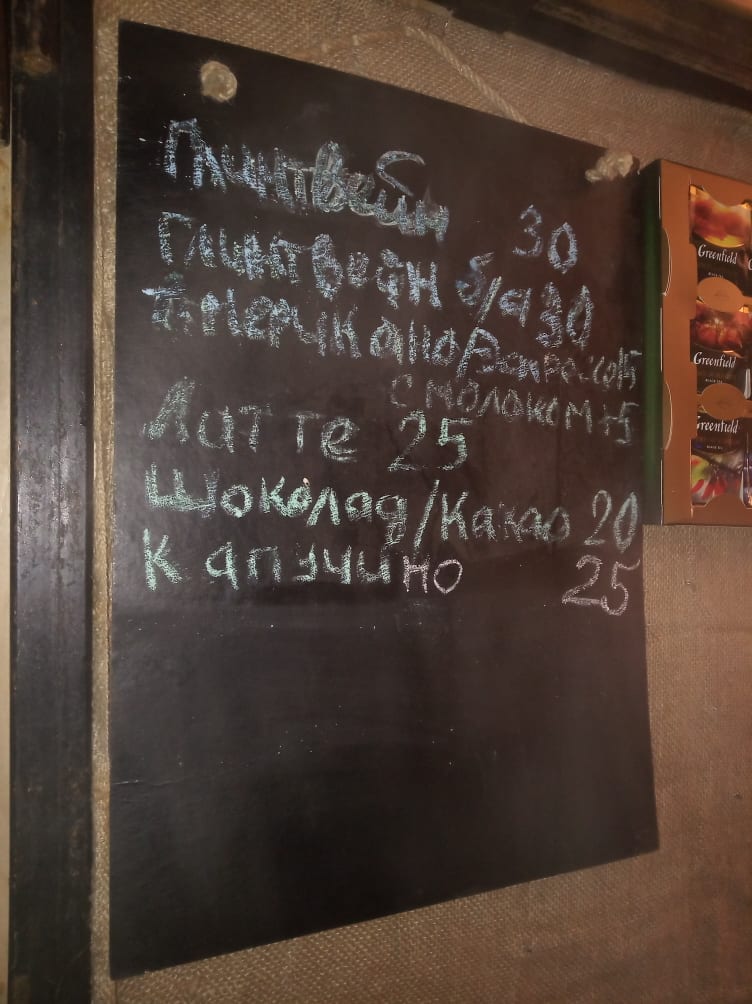 Глинтвейн 30
Глинтвейн б/а 30
Американо/Эспрессо 15
с молоком +5
Латте 25
Шоколад/Какао 20
Капучино 25
Greenfield
BLACK TEA
Greenfield
BLACK TEA
Greenfield